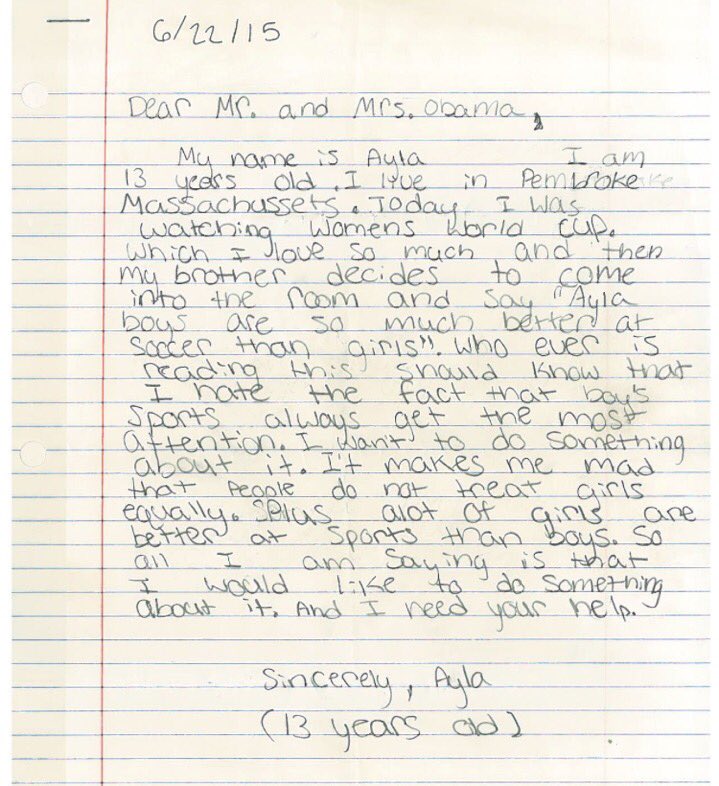 6/22/15
Dear Mr. and Mrs. Obama,
My name is Ayla I am
13 years old. I live in Pembroke
Massachussets. Today I was
watching Womens World Cup.
Which I love so much and then
my brother decides to come
into the room and say "Ayla
boys are so much better at
soccer than girls". Who ever is
reading this should know that
I hate the fact that boy's
sports always get the most
attention. I want to do something
about it. It makes me mad
that people do not treat girls
equally. Plus alot of girls are
better at sports than boys. So
all I am saying is that
I would like to do something
about it. And I need your help.
Sincerely, Ayla
(13 years old)